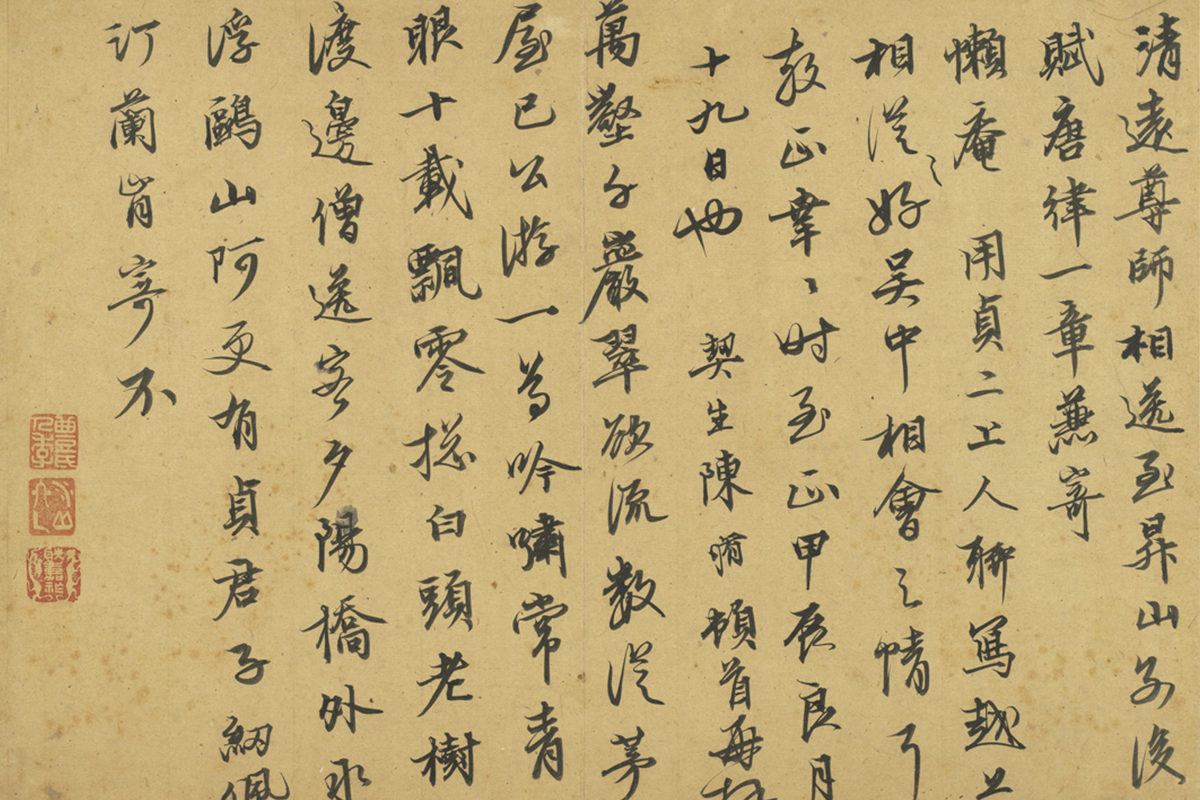 清遠尊師相送至昇山別後
賦唐律一章兼寄
懶庵用貞二上人聊寫越上
相從之好吳中相會之情丐
教正幸幸時至正甲辰良月
十九日也 契生陳脩頓首再拜
萬壑千巖翠欲流數從茅
屋已公游一尊吟嘯常青
眼十載飄零搃白頭老樹
渡邊僧送客夕陽橋外水
浮鷗山阿更有貞君子紉佩
汀蘭肯寄不